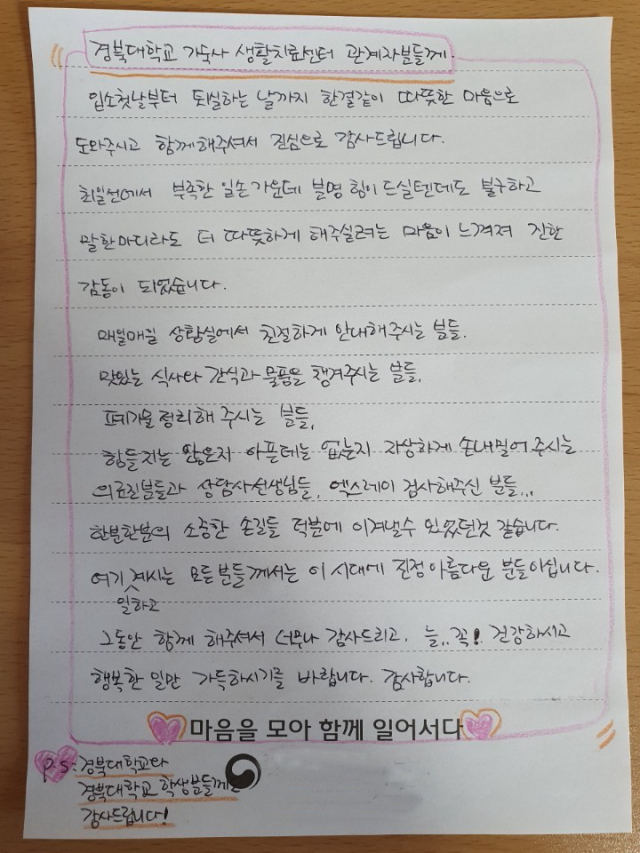 경북대학교 기숙사 생활치료센터 관계자분들께.
입소첫날부터 퇴실하는 날까지 한결같이 따뜻한 마음으로
도와주시고 함께해주셔서 진심으로 감사드립니다.
최일선에서 부족한 일손 가운데 분명 힘이 드실텐데도 불구하고
말한마디라도 더 따뜻하게 해주실려는 마음이 느껴져 진한
감동이 되었습니다.
매일매일 상황실에서 친절하게 안내해주시는 분들.
맛있는 식사와 간식과 물품을 챙겨주시는 분들,
폐기물정리해 주시는 분들,
힘들지는 않은지 아픈데는 없는지 자상하게 손내밀어 주시는
의료진분들과 상담사선생님들, 엑스레이 검사해주신 분들...
한분한분의 소중한 손길들 덕분에 이겨낼수 있었던것 같습니다.
여기 계시는 모든분들께서는 이 시대에 진정 아름다운 분들이십니다.
일하고
그동안 함께 해주셔서 너무나 감사드리고, 늘.. 꼭! 건강하시고
행복한 일만 가득하시기를 바랍니다. 감사합니다.
마음을 모아 함께 일어서다
P.S: 경북대학교와
경북대학교 학생분들께도
감사드립니다!